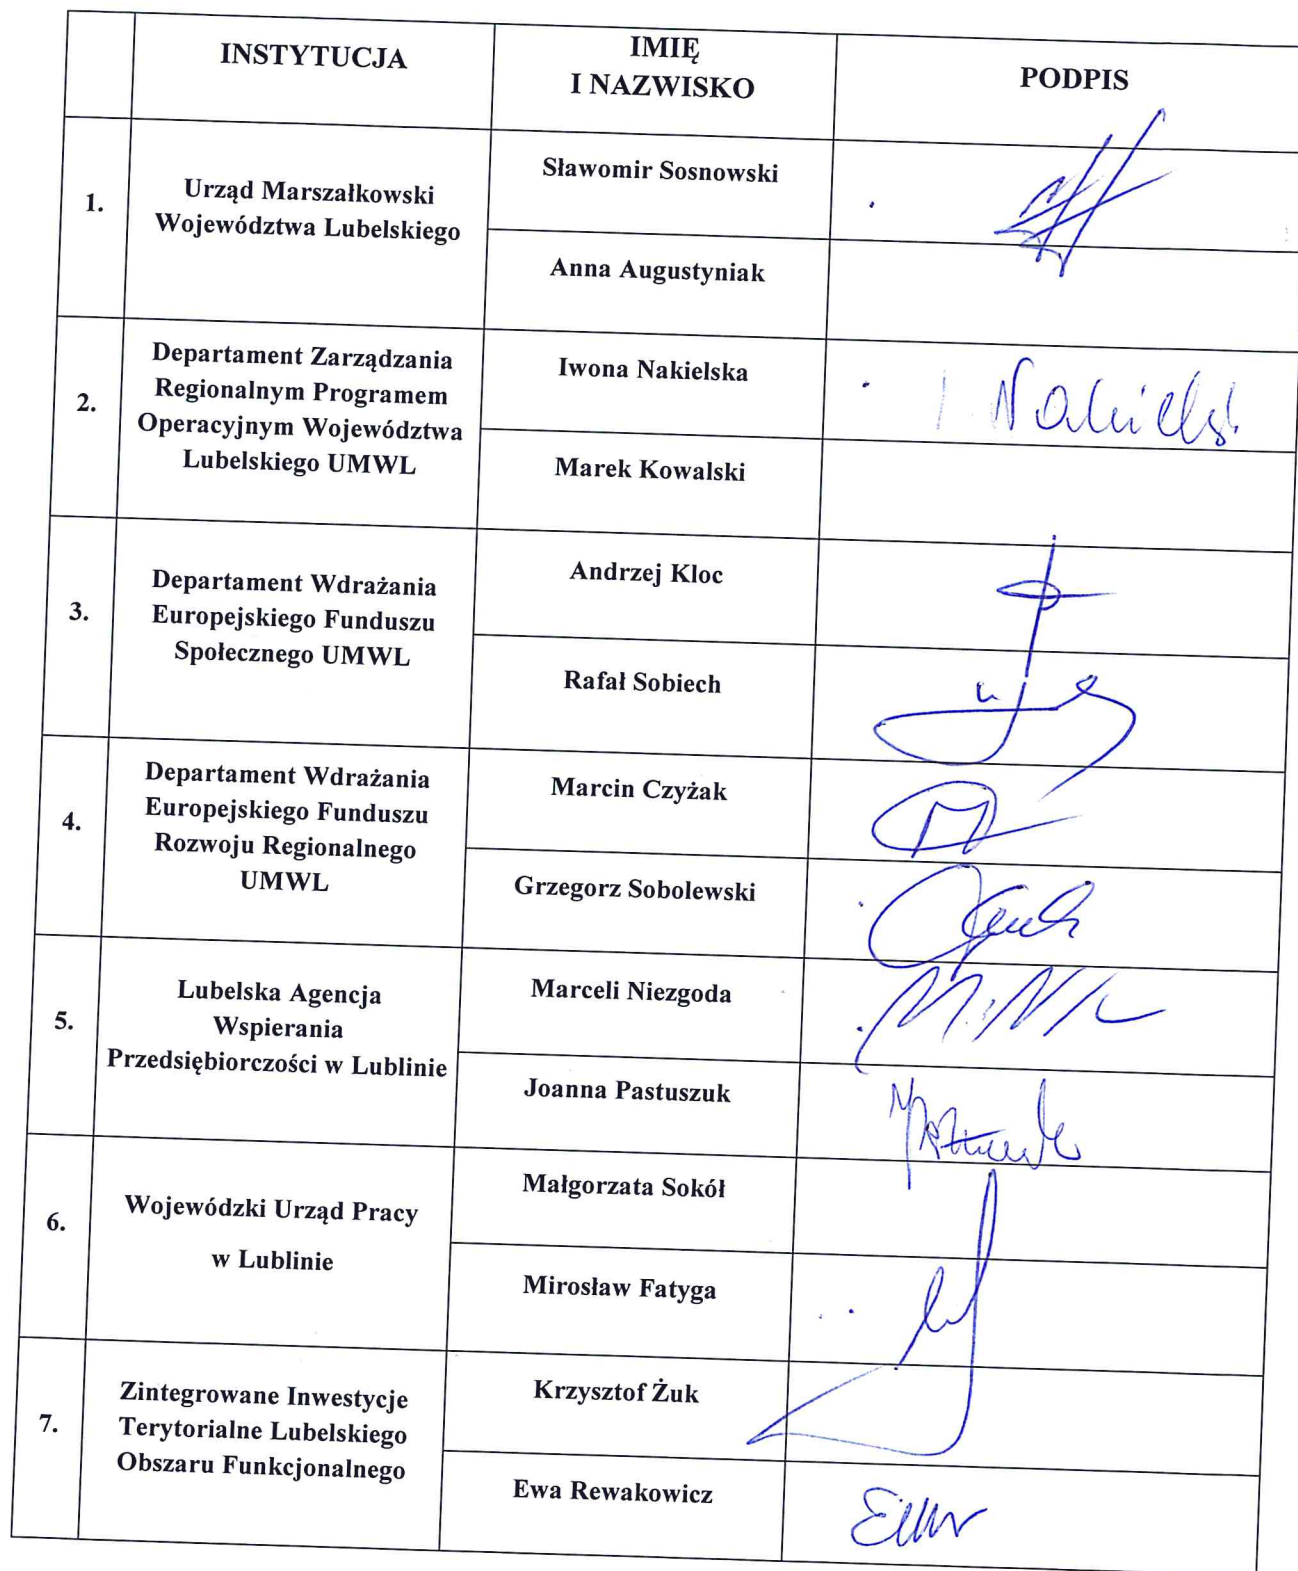 INSTYTUCJA
IMIĘ
I NAZWISKO
PODPIS
1.
Urząd Marszałkowski
Województwa Lubelskiego
Sławomir Sosnowski
Anna Augustyniak
2.
Departament Zarządzania
Regionalnym Programem
Operacyjnym Województwa
Lubelskiego UMWL
Iwona Nakielska
Marek Kowalski
3.
Departament Wdrażania
Europejskiego Funduszu
Społecznego UMWL
Andrzej Kloc
Rafał Sobiech
4.
Departament Wdrażania
Europejskiego Funduszu
Rozwoju Regionalnego
UMWL
Marcin Czyżak
Grzegorz Sobolewski
5.
Lubelska Agencja
Wspierania
Przedsiębiorczości w Lublinie
Marceli Niezgoda
Joanna Pastuszuk
6.
Wojewódzki Urząd Pracy
w Lublinie
Małgorzata Sokół
Mirosław Fatyga
7.
Zintegrowane Inwestycje
Terytorialne Lubelskiego
Obszaru Funkcjonalnego
Krzysztof Żuk
Ewa Rewakowicz